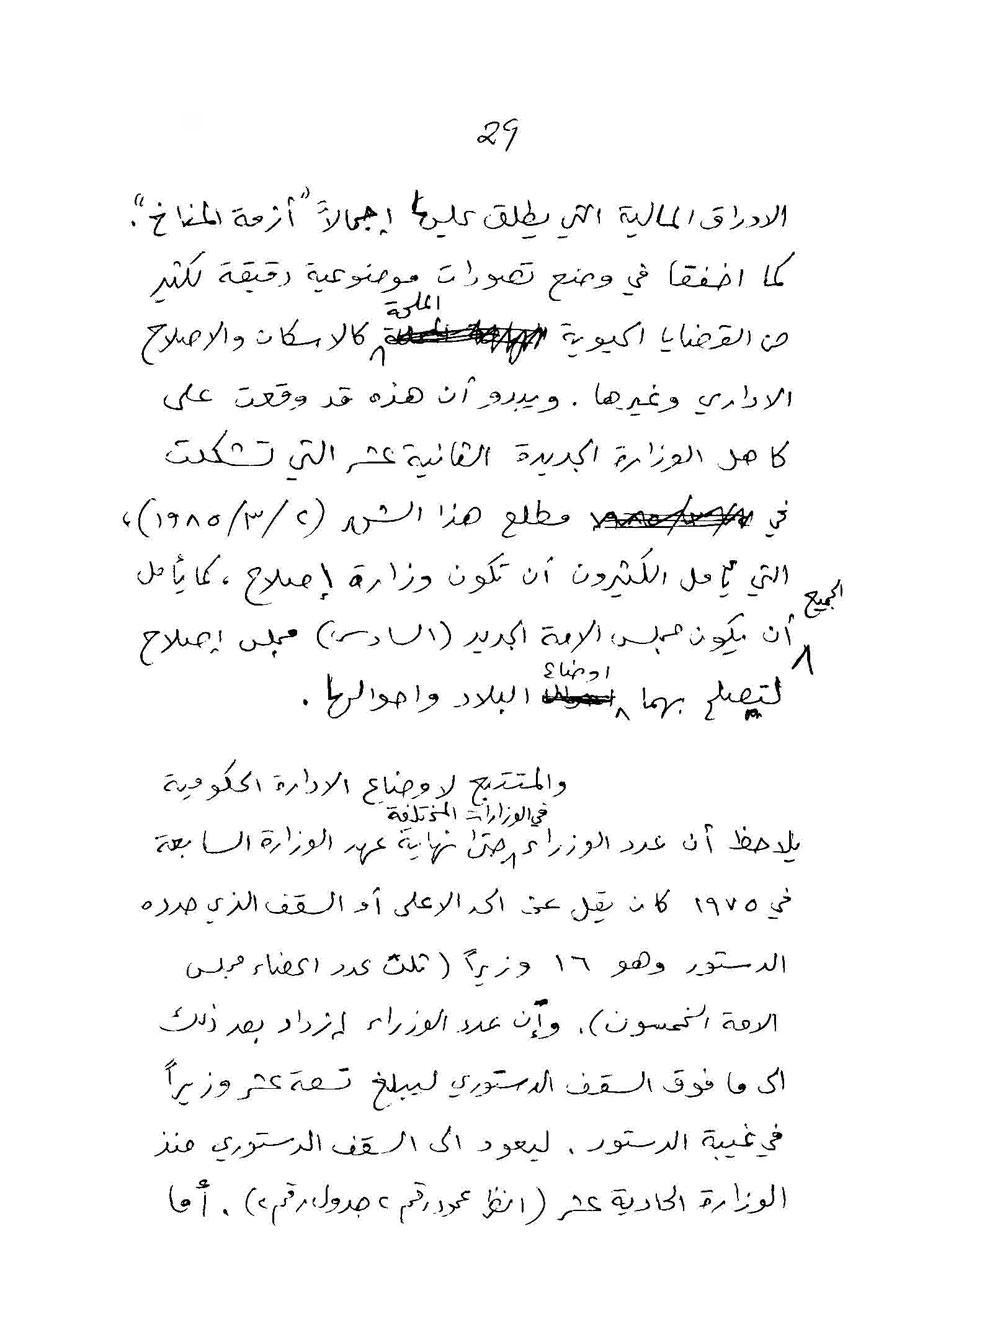 29
الاوراق المالية التي يطلق عليها إجمالاً "أزمة المناخ".
كما اخفقا في وضع تصورات موضوعية دقيقة لكثير
الملحة
من القضايا الحيوية كالاسكان والاصلاح
الاداري وغيرها. ويبدو أن هذه قد وقعت على
كاهل الوزارة الجديدة الثانية عشر التي تشكلت
في مطلع هذا الشهر (٢/٣/١٩٨٥)،
التي يأمل الكثيرون أن تكون وزارة إصلاح، كما يأمل
الجميع
أن يكون مجلس الامة الجديد (السادس) مجلس إصلاح
اوضاع
لتصلح بهما البلاد واحوالها.
والمتتبع لاوضاع الادارة الحكومية
في الوزارات المختلفة
يلاحظ أن عدد الوزراء حتى نهاية عهد الوزارة السابعة
في ١٩٧٥ كان يقل عن الحد الاعلى أو السقف الذي حدده
الدستور وهو ١٦ وزيراً (ثلث عدد اعضاء مجلس
الامة الخمسون). وإن عدد الوزراء بعد ذلك
الى ما فوق السقف الدستوري ليبلغ تسعة عشر وزيراً
في غيبة الدستور. ليعود الى السقف الدستوري منذ
الوزارة الحادية عشر (انظر عمود رقم ٢ جدول رقم ٢). أما